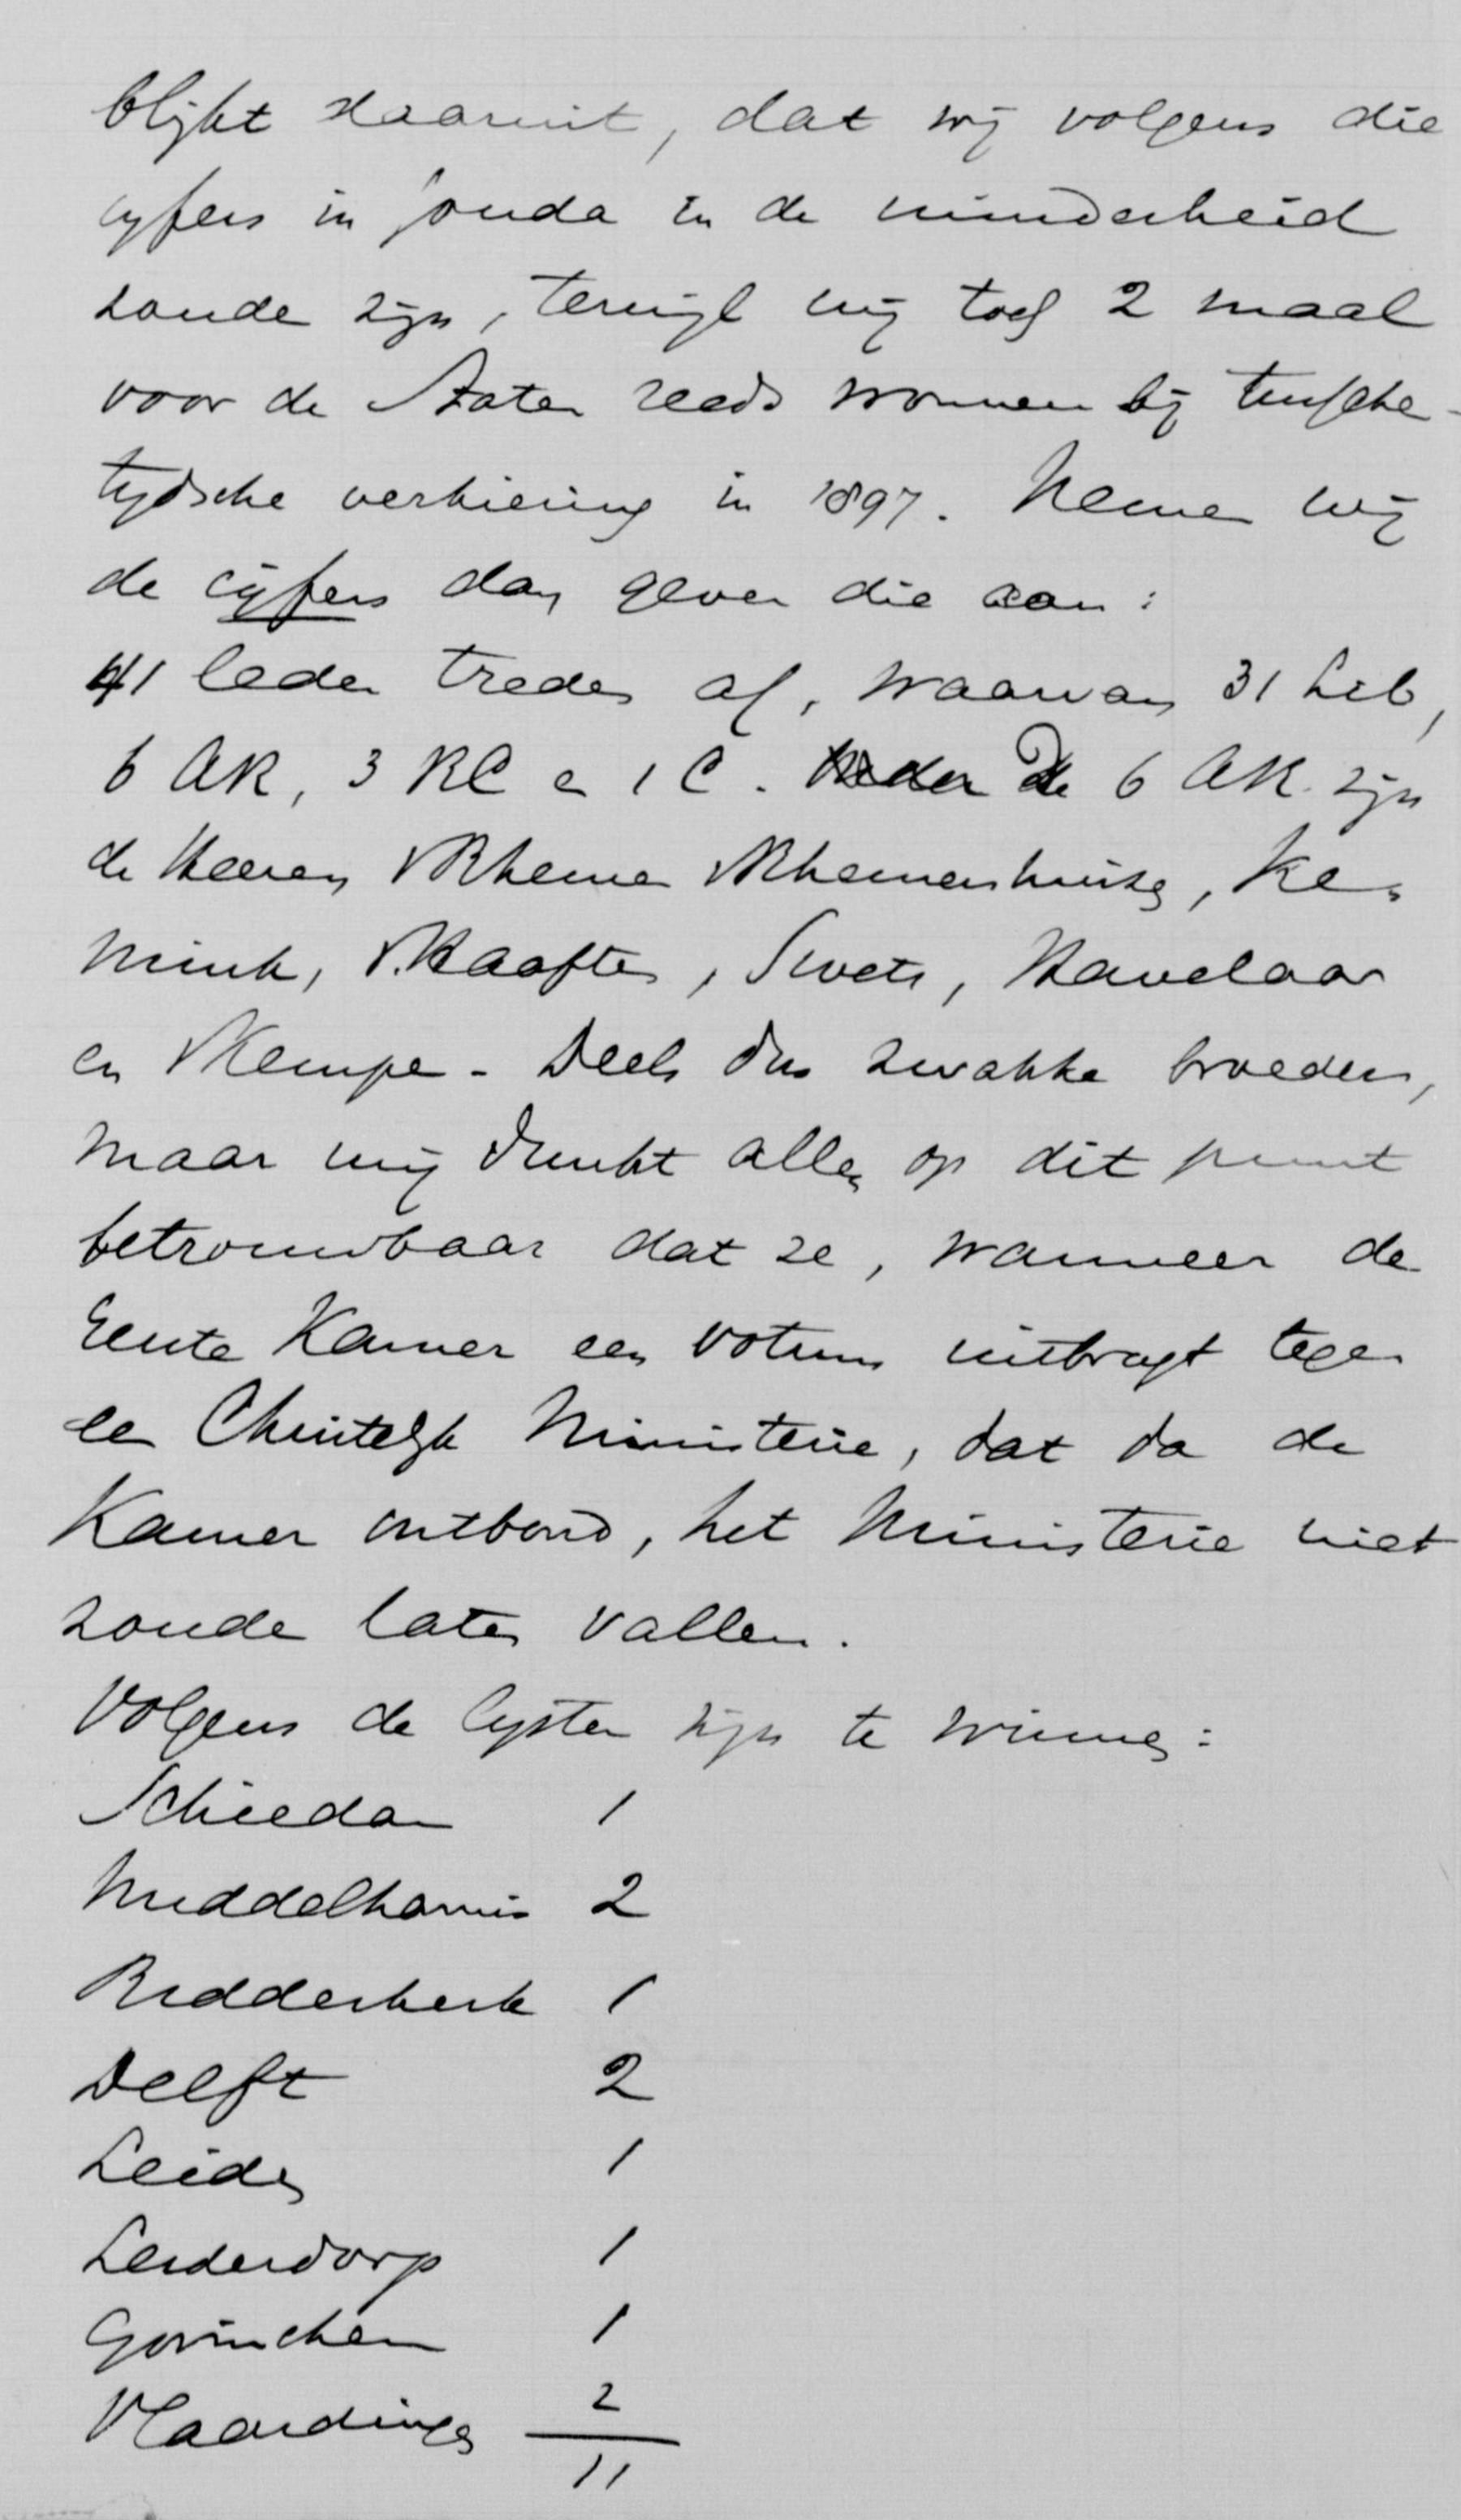 blijkt daaruit, dat wij volgens die
cyfers in Gouda in de minderheid
zoude zijn, terwijl wij toch 2 maal
voor de Staten reeds wonnen bij tussche-
tijdsche verkiezing in 1897. Nemen wij
de cijfers dan geven die aan:
41 leden treden af, waarvan 31 Lib,
6 AR, 3 RC en 1 C. De 6 AR. zijn
de Heeren v Rhemen Rhemenshuizen, Ke-
mink, v. Haaften, Swets, Havelaar
en v Kempe - Deels dus zwakke broeders,
maar mij dunkt allen op dit punt
betrouwbaar dat ze, wanneer de
Eerste Kamer een votum uitbragt tegen
een Christelijk Ministerie, dat da de
Kamer ontbond, het Ministerie niet
zoude laten vallen.
Volgens de lijsten zijn te winnen:
Schiedam 1
Middelharnis 2
Ridderkerk 1
Delft 2
Leiden 1
Leiderdorp 1
Gorinchem 1
Vlaardingen 2
11